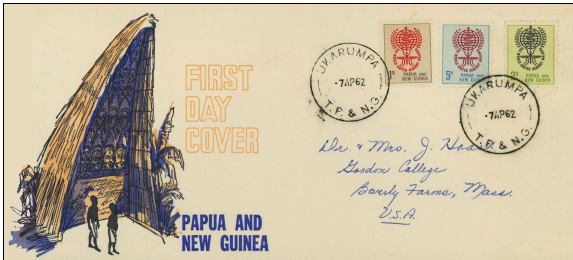 FIRST
DAY
COVER
PAPUA AND
NEW GUINEA
UKARUMPA
-7AP62
T.P. & N.G.
1s
PAPUA AND
NEW GUINEA
5d
PAPUA AND
NEW GUINEA
PAPUA AND
NEW GUINEA
UKARUMPA
-7AP62
T.P. & N.G.
Dr. & Mrs. J.
Gordon College
Beverly Farms, Mass.
U.S.A.